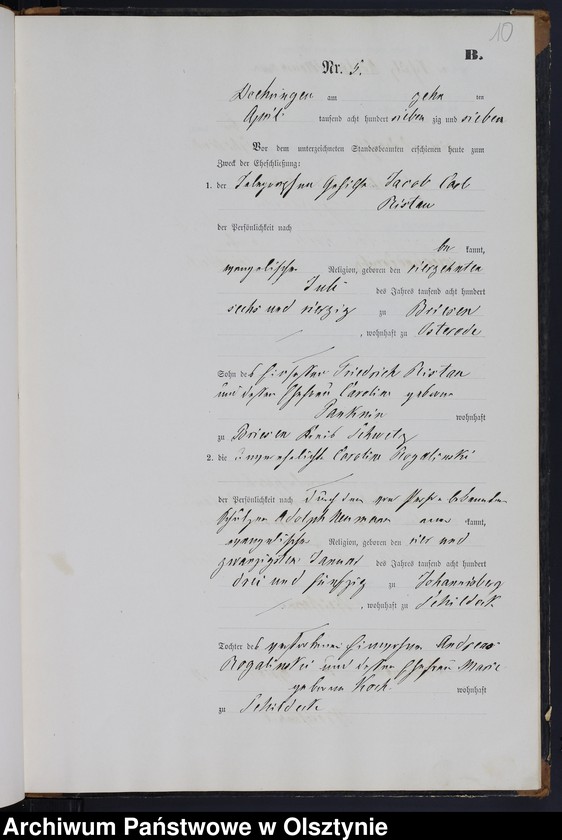 10
B.
Nr. 5.
Doehringen am zehn ten
April tausend acht hundert sieben zig und sieben
Vor dem unterzeichneten Standesbeamten erschienen heute zum
Zweck der Eheschließung:
1. der Telegraphen Gehilfe Jacob Carl
Ristau
der Persönlichkeit nach
be kannt,
evangelischer Religion, geboren den vierzehnten
Juli des Jahres tausend acht hundert
sechs und vierzig zu Briesen
, wohnhaft zu Osterode
Sohn des Hirten Friedrich Ristau
und dessen Ehefrau Caroline geborne
Panknin wohnhaft
zu Briesen Kreis Schwetz
2. die unverehelichte Caroline Rogalinski
der Persönlichkeit nach durch den von Person bekannten
Schulzen Adolph Neumann aner kannt,
evangelischer Religion, geboren den vier und
zwanzigsten Januar des Jahres tausend acht hundert
drei und fünfzig zu Johannisberg
, wohnhaft zu Schildeck
Tochter des verstorbenen Einwohner Andreas
Rogalinski und dessen Ehefrau Marie
geborne Koch wohnhaft
zu Schildeck
Archiwum Państwowe w Olsztynie